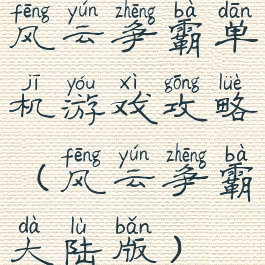 fēng yún zhēng bà dān
风云争霸单
jī yóu xì gōng lüè
机游戏攻略
fēng yún zhēng bà
(风云争霸
dà lù bǎn
大陆版)